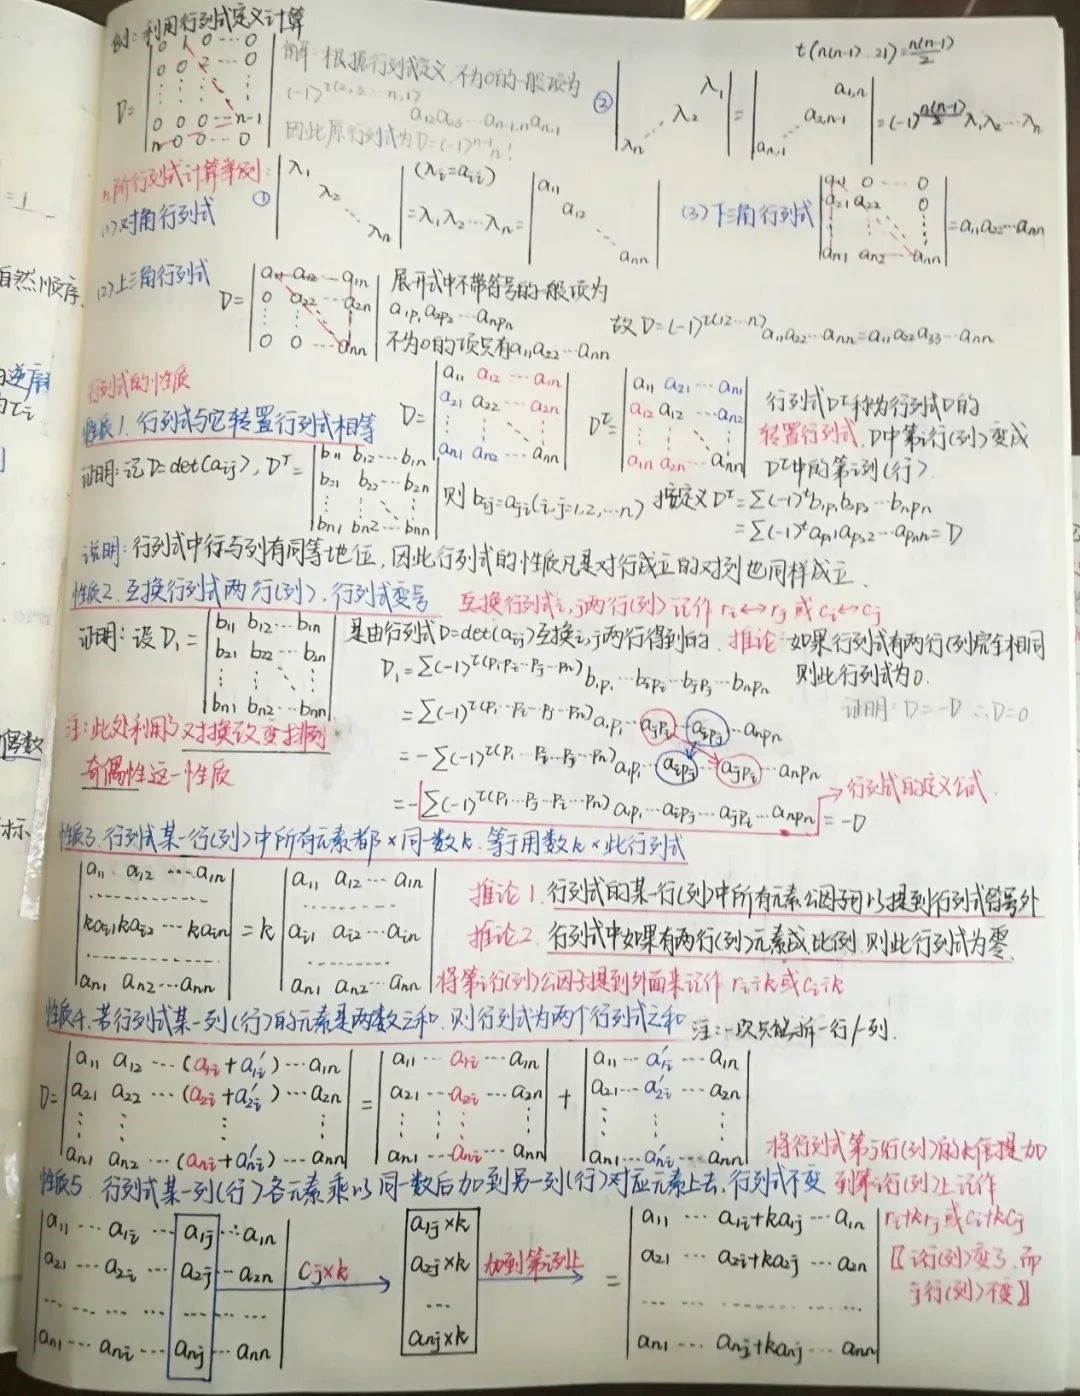 例：利用行列式定义计算
D= | 0 1 0 ⋯ 0 |
| 0 0 2 ⋯ 0 |
| ⋮ ⋮ ⋮ ⋮ |
| 0 0 0 ⋯ n-1 |
| n 0 0 ⋯ 0 |
解：根据行列式定义，不为0的一般项为
(-1)^t(2,3,⋯n,1) a12a23⋯an-1,nan,1
因此原行列式为D=(-1)^n-1 n!
t(n(n-1)…21)=n(n-1)/2
② | λ1 |
| λ2 |
| λn |
= | a1,n |
| a2,n-1 |
| an,1 |
=(-1)^n(n-1)/2 λ1λ2⋯λn
n阶行列式计算举例：
(1)对角行列式
① | λ1 |
| λ2 |
| λn |
(λi=aii)
=λ1λ2⋯λn=
| a11 |
| a12 |
| ann |
(3)下三角行列式
| a11 0 ⋯ 0 |
| a21 a22 0 |
| an1 an2 ⋯ ann |
=a11a22⋯ann
(2)上三角行列式
D= | a11 a12 ⋯ a1n |
| 0 a22 ⋯ a2n |
| 0 0 ⋯ ann |
展开式中不带符号的一般项为
a1p1a2p2⋯anpn
不为0的项只有a11a22⋯ann
故D=(-1)^t(12⋯n) a11a22⋯ann=a11a22a33⋯ann
行列式的性质
性质1.行列式与它转置行列式相等
D= | a11 a12 ⋯ a1n |
| a21 a22 ⋯ a2n |
| an1 an2 ⋯ ann |
D^T= | a11 a21 ⋯ an1 |
| a12 a12 ⋯ an2 |
| a1n a2n ⋯ ann |
行列式D^T称为行列式D的
转置行列式，D中第i行(列)变成
D^T中的第i列(行).
证明：记D=det(aij), D^T=
| b11 b12⋯b1n |
| b21 b22⋯b2n |
| bn1 bn2⋯bnn |
则bij=aji(i,j=1,2,…n) 按定义D^T=∑(-1)^t b1p1b2p2⋯bnpn
=∑(-1)^t ap11ap22⋯apnn=D
说明：行列式中行与列有同等地位，因此行列式的性质凡是对行成立的对列也同样成立.
性质2.互换行列式两行(列)，行列式变号 互换行列式i,j两行(列)记作ri↔rj或ci↔cj
证明：设D1= | b11 b12⋯b1n |
| b21 b22⋯b2n |
| bn1 bn2⋯bnn |
是由行列式D=det(aij)互换i,j两行得到的.
推论 如果行列式有两行(列)完全相同
则此行列式为0.
证明：D=-D ∴D=0
D1=∑(-1)^t(p1⋯pi⋯pj⋯pn) b1p1⋯bipi⋯bjpj⋯bnpn
=∑(-1)^t(p1⋯pi⋯pj⋯pn) a1p1⋯ajpi⋯aipj⋯anpn
=-∑(-1)^t(p1⋯pi⋯pj⋯pn) a1p1⋯aipj⋯ajpi⋯anpn
=-∑(-1)^t(p1⋯pj⋯pi⋯pn) a1p1⋯aipj⋯ajpi⋯anpn=-D
→行列式的定义公式.
注：此处利用了对换改变排列
奇偶性这一性质
性质3.行列式某一行(列)中所有元素都×同一数k.等于用数k×此行列式
| a11 a12 ⋯ a1n |
| kai1 kai2 ⋯ kain |
| an1 an2 ⋯ ann |
=k | a11 a12 ⋯ a1n |
| ai1 ai2 ⋯ ain |
| an1 an2 ⋯ ann |
推论1.行列式的某一行(列)中所有元素公因子可以提到行列式符号外
推论2.行列式中如果有两行(列)元素成比例.则此行列式为零.
将第i行(列)公因子提到外面来记作ri÷k或ci÷k
性质4.若行列式某一列(行)的元素是两数之和.则行列式为两个行列式之和 注：一次只能拆一行/列.
D= | a11 a12 ⋯ (a1i+a1i′) ⋯ a1n |
| a21 a22 ⋯ (a2i+a2i′) ⋯ a2n |
| an1 an2 ⋯ (ani+ani′) ⋯ ann |
= | a11 ⋯ a1i ⋯ a1n |
| a21 ⋯ a2i ⋯ a2n |
| an1 ⋯ ani ⋯ ann |
+ | a11 ⋯ a1i′ ⋯ a1n |
| a21 ⋯ a2i′ ⋯ a2n |
| an1 ⋯ ani′ ⋯ ann |
性质5.行列式某一列(行)各元素乘以同一数后加到另一列(行)对应元素上去，行列式不变
将行列式第j行(列)的k倍提加
到第i行(列)上记作
ri+krj或ci+kcj
【i行(列)变了.而
j行(列)不变】
| a11 ⋯ a1i ⋯ a1j ⋯ a1n |
| a21 ⋯ a2i ⋯ a2j ⋯ a2n |
| an1 ⋯ ani ⋯ anj ⋯ ann |
cj×k
a1j×k
a2j×k
⋯
anj×k
加到第i列上
= | a11 ⋯ a1i+ka1j ⋯ a1n |
| a21 ⋯ a2i+ka2j ⋯ a2n |
| an1 ⋯ ani+kanj ⋯ ann |
=1
自然顺序.
偶数
标、